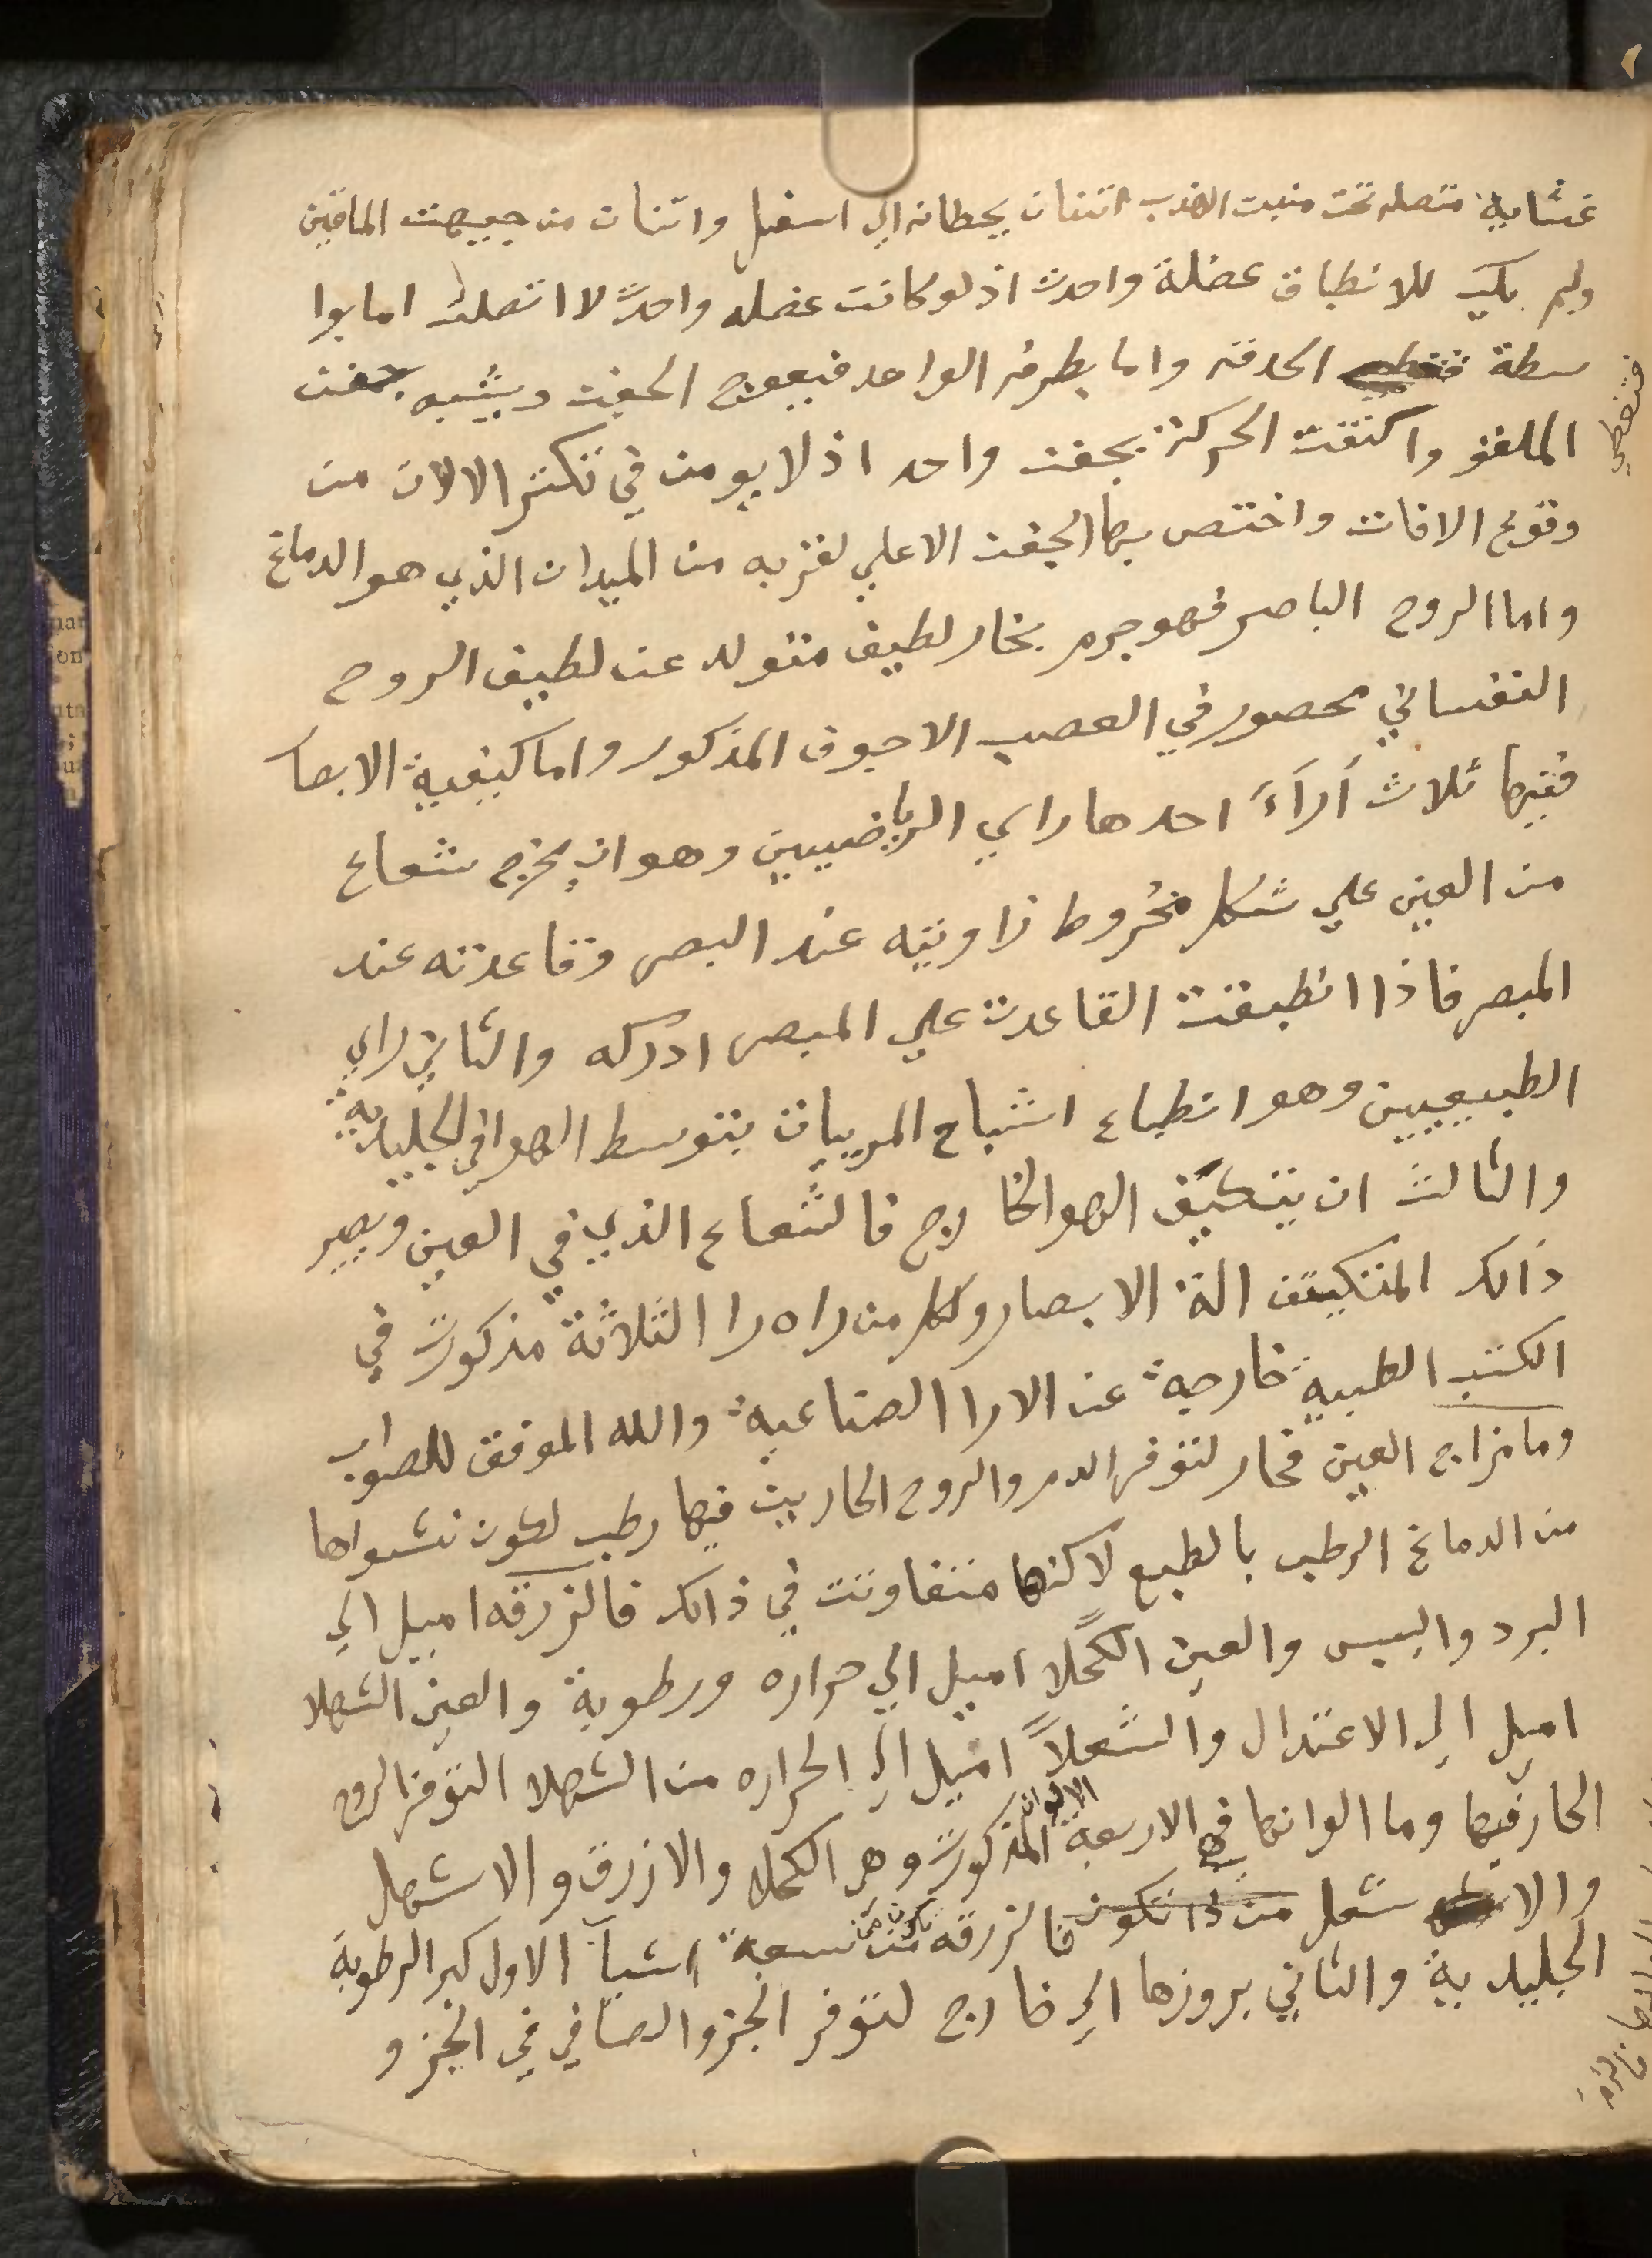 غشاية متصله تحت منبت الهدب اتنان يحطانه الي اسفل واتنان من جيهت الماقين
ولم يكن للانطباق عضلة واحدت اذ لو كانت عضله واحدً لا اتصلت اما بوا
سطة الحدقه واما بطرفه الواحد فيعوج الجفن ويشبه بجفن
فتغطي
الملقو واكتفت الحركة بجفن واحد اذ لا يومن في تكثر الالات من
وقوع الافات واختص بها الجفن الاعلي لقربه من الميدان الذي هو الدماغ
واما الروح الباصر فهو جرم بخار لطيف متولد عن لطيف الروح
النفساني محصور في العصب الاجوف المذكور واما كيفية الابصا
ففيها ثلاث أراءً احدها راي الرياضيين وهو ان يخرج شعاع
من العين علي شكل مخروط زاويته عند البصر وقاعدته عند
المبصر فاذا انطبقت القاعدت علي المبصر ادركه والثاني راي
الطبيعيين وهو انطباع اشباح المرييات بتوسط الهوا في الجليدية
والثالث ان يتكيّف الهوا الخارج فالشعاع الذي في العين ويصير
ذالك المتكيّف الة الابصار وكل من راه را الثلاثة مذكورت في
الكتب الطبية خارجة عن الارا الصناعية والله الموفق للصواب
وما مزاج العين فحار لتوفر الدم والروح الحاريين فيها رطب لكون نشواها
من الدماغ الرطب بالطبع لاكنها متفاوتت في ذالك فالزرقه اميل الي
البرد واليبس والعين الكحلا اميل الي حراره ورطوبة والعين الشهلا
اميل الي الاعتدال والشعلاً اميل الي الحراره من الشهلا التوفر الروح
الحار فيها وما الوانها فهي الاربعة الالوان المذكورت وهو الكحلا والازرق والاشهل
والا شعل من ذا تكون فالزرقه تكون من سبعة اشيآ الاول كبر الرطوبة
الجليدية والثاني بروزها الي خارج لتوفر الجزو الصافي في الجزو